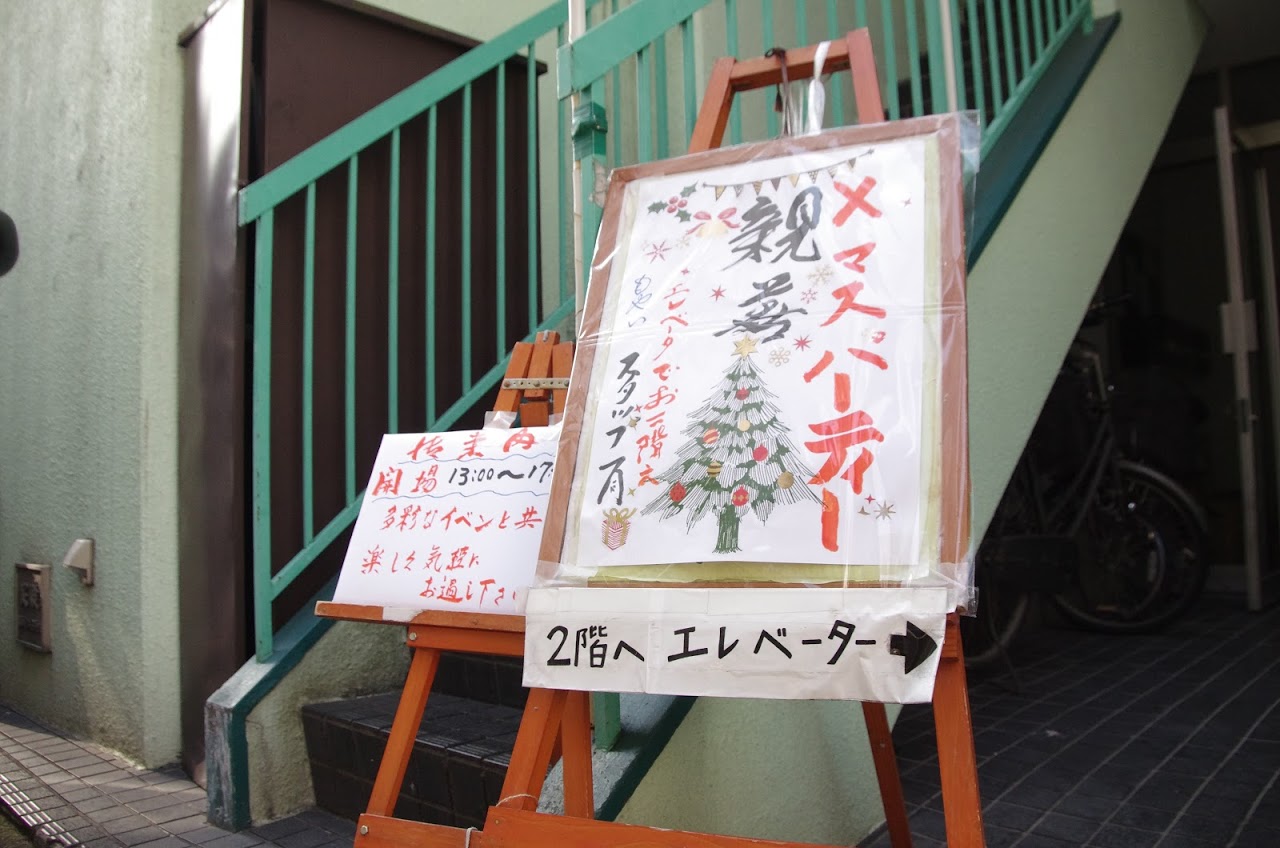 メマスパーティー
親善
エレベータでお二階え
もやい スタッフ一同
2階へ エレベーター→
開場 13:00〜17:
多彩なイベントと共
楽しく気軽に
お過し下さい